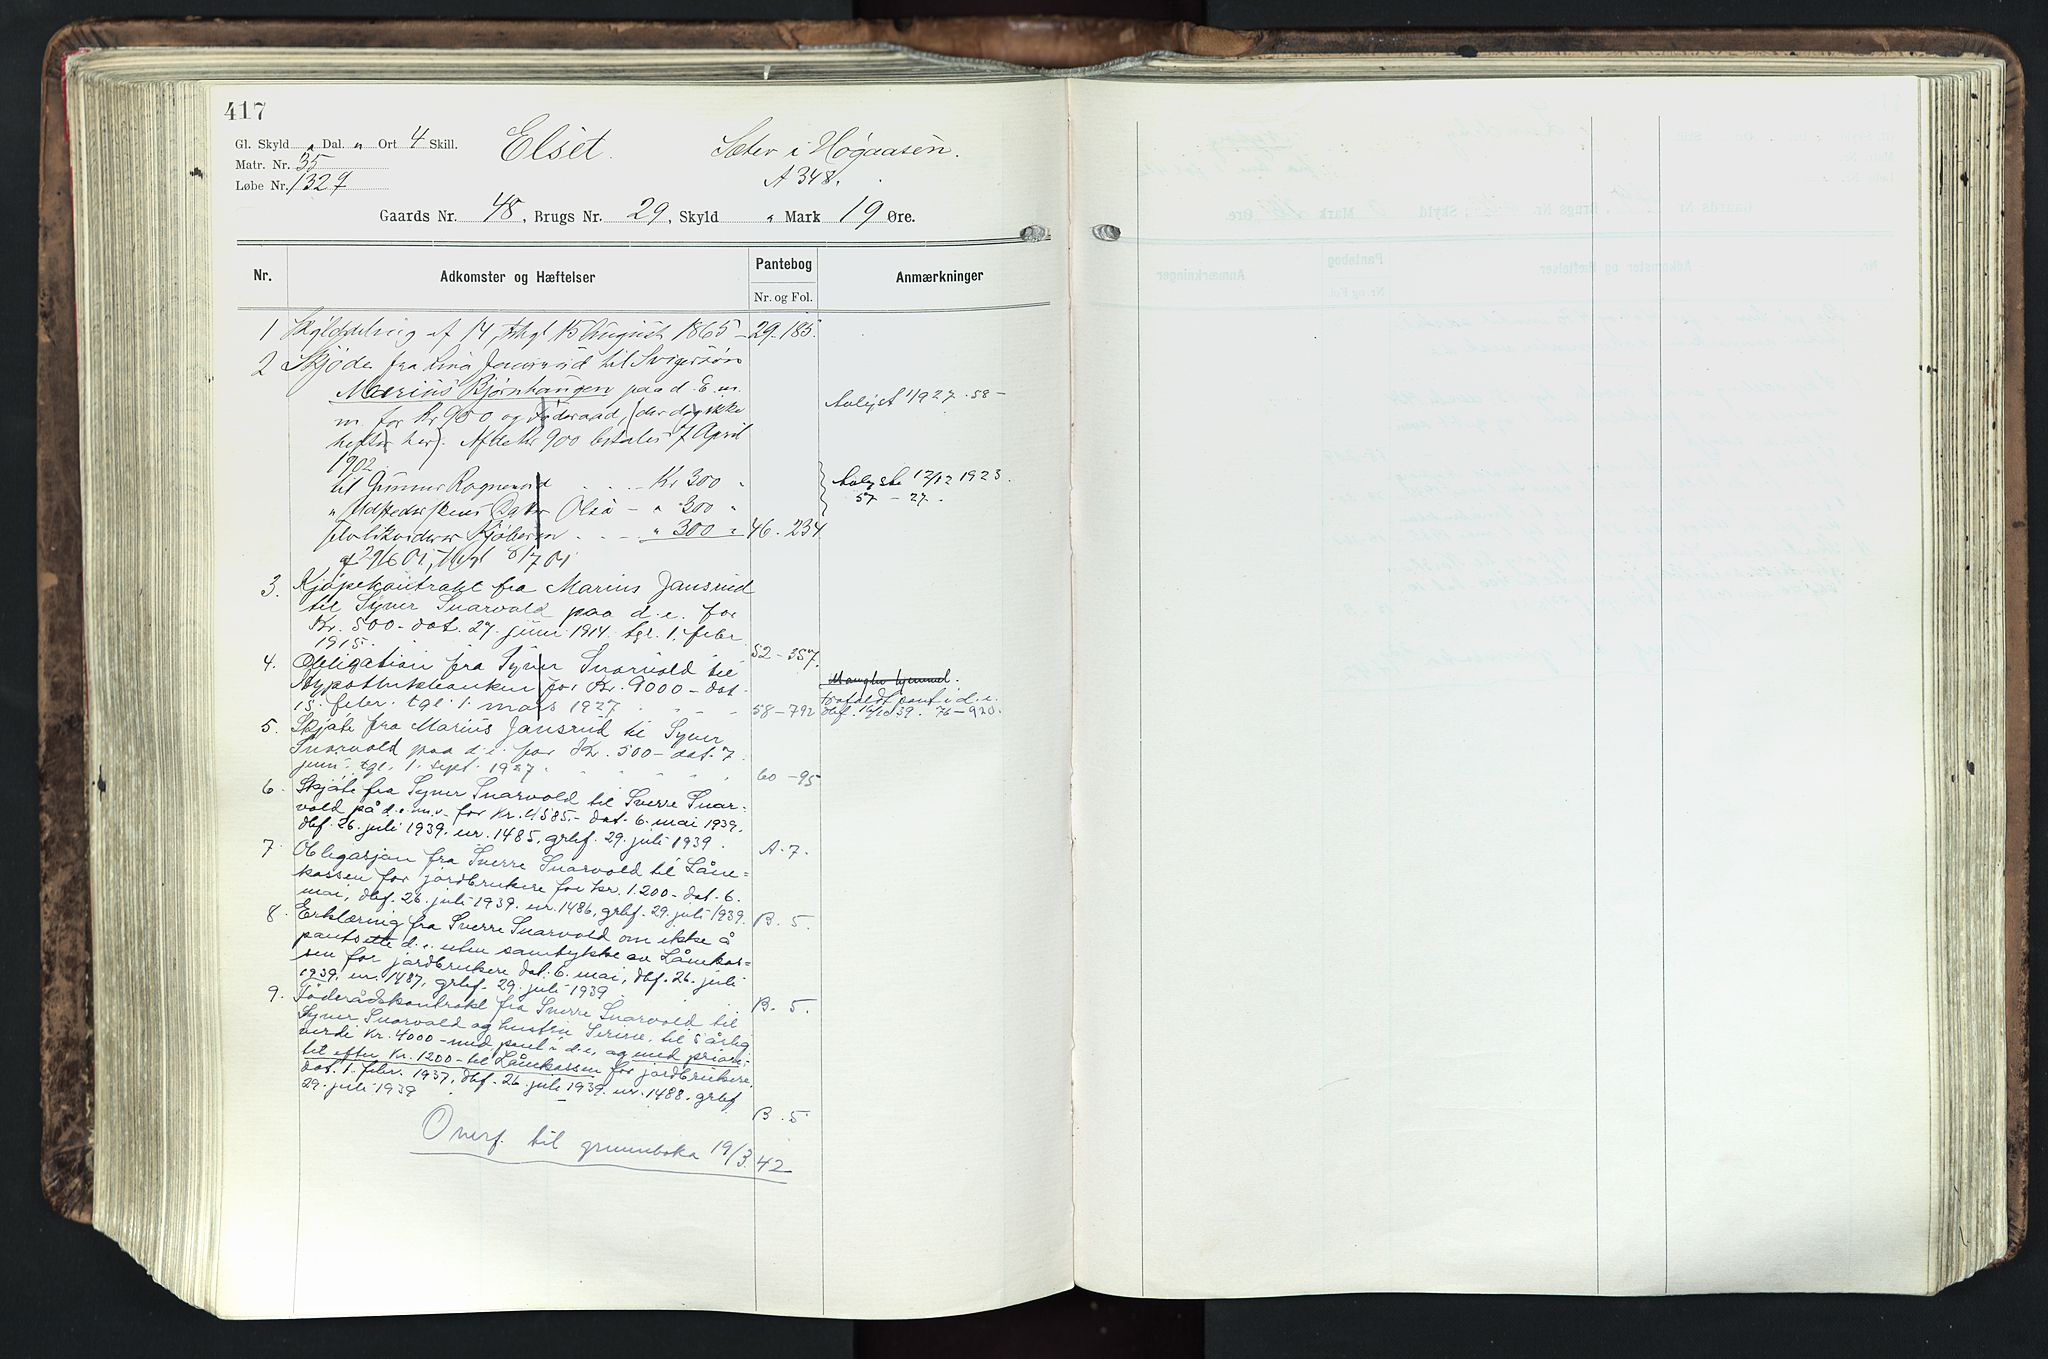 417
Gl. Skyld " Dal. " Ort 4 Skill.
Matr. Nr. 35
Løbe Nr. 1329
Elset. Sæter i Høgaasen.
A 348.
Gaards Nr. 48, Brugs Nr. 29, Skyld " Mark 19 Øre.
Nr. Adkomster og Hæftelser Pantebog Anmærkninger
Nr. og Fol.
1 Skylddelning af 14, thgl 15 August 1865 – 29.185.
2 Skjøde fra Lina Jansrud til Svigersøn
Marius Bjørnhaugen paa d. E. m.
m. for Kr 950 og Föderaad, (der dog ikke
hefter her). Af dette Kr 900 betales 7 April
1902
Avlyst 1/9 27. 58 –
til Gunnar Rognerud . . . Kr 300 "
" Olsa – " 300 "
selv likviderer Kjøberen . . . " 300 " 46.234
af 29/6 01, thgl 8/7 01
Avlyste 12/12 1923.
57 – 27.
3. Kjøpekontrakt fra Marius Jansrud
til Syver Snarvold paa d. e. for
Kr. 500 – dat. 27. juni 1914. tgl. 1. febr
1915. 52 – 357.
4. Obligation fra Syver Snarvold til
Hypothekbanken for Kr. 9000 – dat.
15. febr. tgl. 1. mars 1927 " " " 58 – 792
Mangler hjemmel.
frafaldt pant i d. e.
dbf. 16/10 39. 76 – 920.
5. Skjøte fra Marius Jansrud til Syver
Snarvold paa d. e. for Kr. 500 – dat. 7.
juni. tgl. 1. sept. 1927. " " " " 60 – 95
6. Skjøte fra Syver Snarvold til Sverre Snar-
vold på d. e. m. v. for Kr. 4585 – dat. 6. mai 1939.
dbf. 26. juli 1939. nr. 1485, grbf. 29. juli 1939. A. 7.
7. Obligasjon fra Sverre Snarvold til Låne-
kassen for jordbrukere for kr. 1.200 – dat. 6.
mai, dbf. 26. juli 1939. nr. 1486, grbf. 29. juli 1939. B. 5.
8. Erklæring fra Sverre Snarvold om ikke å
pantsette d. e. uten samtykke av Lånekas-
sen for jordbrukere dat. 6. mai, dbf. 26. juli
1939. nr. 1487, grbf. 29. juli 1939 B. 5.
9. Föderådskontrakt fra Sverre Snarvold til
Syver Snarvold og hustru Serine, til 5 årlig
verdi Kr. 4000 – med pant i d. e. og med priori-
tet efter Kr. 1200 – til Lånekassen for jordbrukere.
dat. 1. febr. 1937, dbf. 26. juli 1939. nr. 1488. grbf
29. juli 1939 B. 5
Overf. til grunnboka 19/3.42